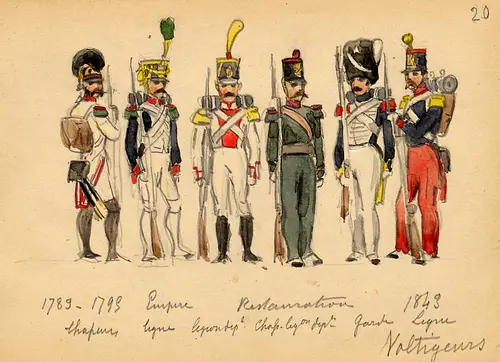 20
1789-1793 Empire Restauration 1843
Chasseurs ligne légion dépt. Chass. légion dépt. Garde Ligne
Voltigeurs